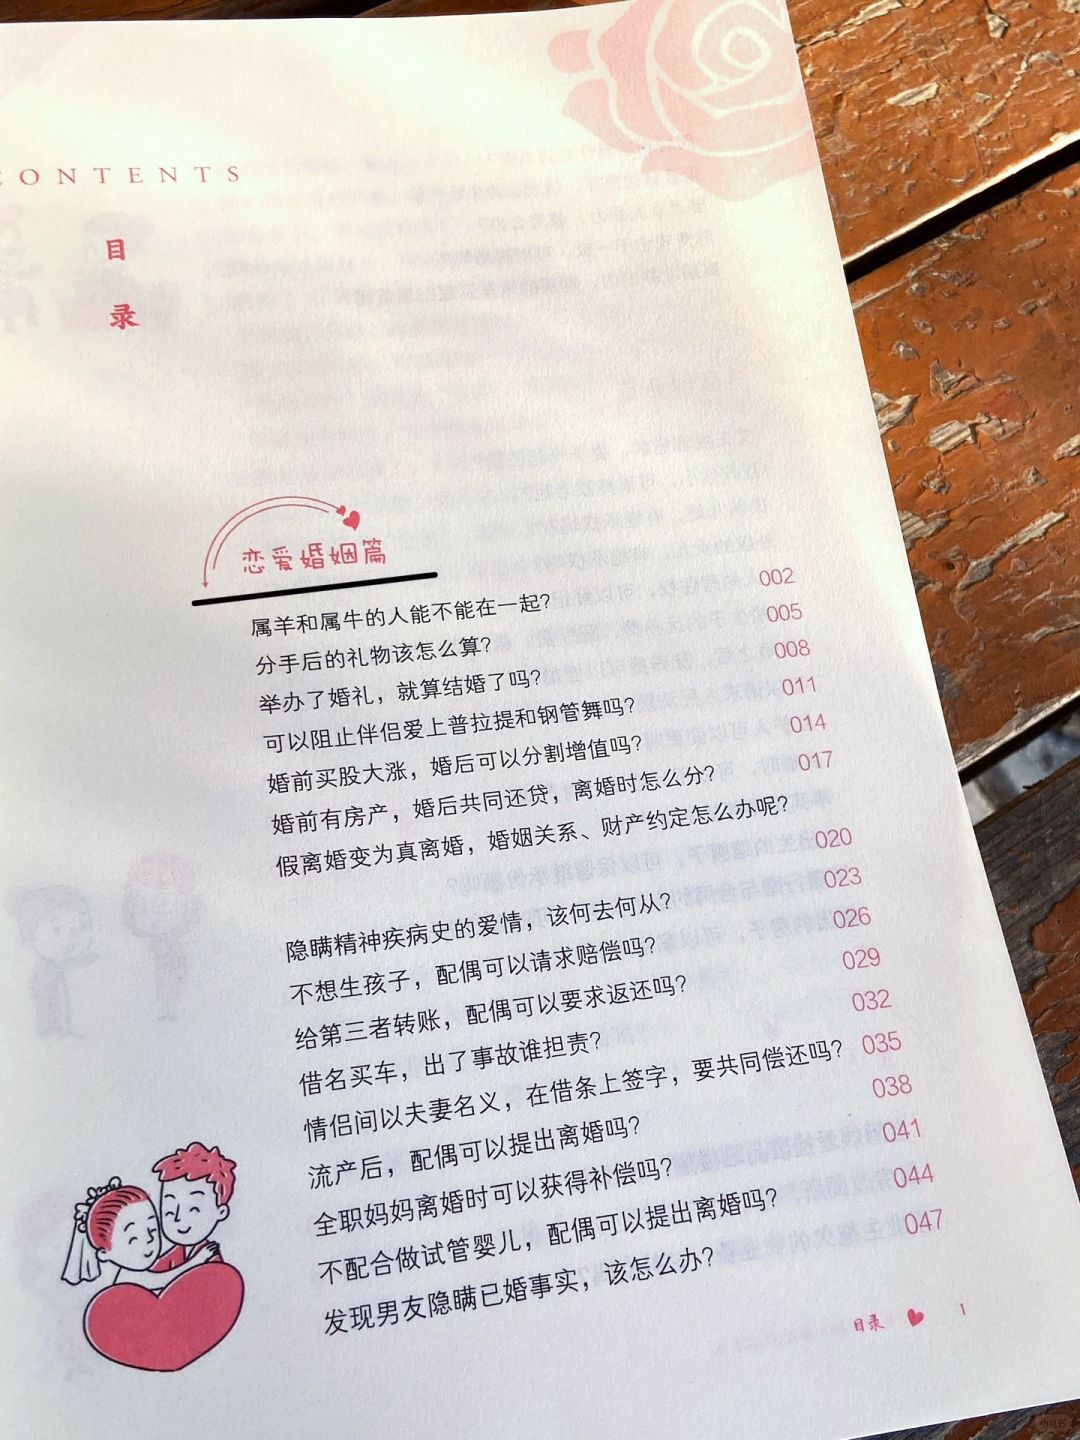 CONTENTS
目
录
恋爱婚姻篇
属羊和属牛的人能不能在一起? 002
分手后的礼物该怎么算? 005
举办了婚礼，就算结婚了吗? 008
可以阻止伴侣爱上普拉提和钢管舞吗? 011
婚前买股大涨，婚后可以分割增值吗? 014
婚前有房产，婚后共同还贷，离婚时怎么分? 017
假离婚变为真离婚，婚姻关系、财产约定怎么办呢? 020
隐瞒精神疾病史的爱情，该何去何从? 023
不想生孩子，配偶可以请求赔偿吗? 026
给第三者转账，配偶可以要求返还吗? 029
借名买车，出了事故谁担责? 032
情侣间以夫妻名义，在借条上签字，要共同偿还吗? 035
流产后，配偶可以提出离婚吗? 038
全职妈妈离婚时可以获得补偿吗? 041
不配合做试管婴儿，配偶可以提出离婚吗? 044
发现男友隐瞒已婚事实，该怎么办? 047
目录 1